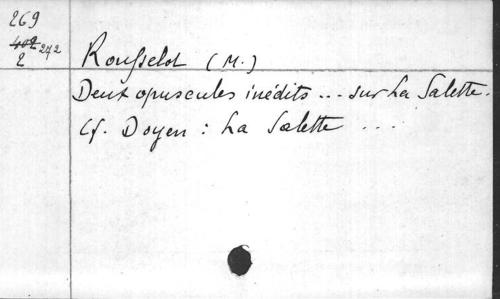 269
402 242
2
Rousselot (M.)
Deux opuscules inédits ... sur La Salette.
Cf. Doyen : La Salette ...